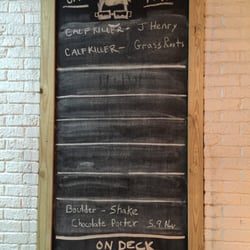 CALFKILLER - J Henry
CALFKILLER - GrassRoots
Boulder - Shake
Chocolate Porter 5.9
ON DECK